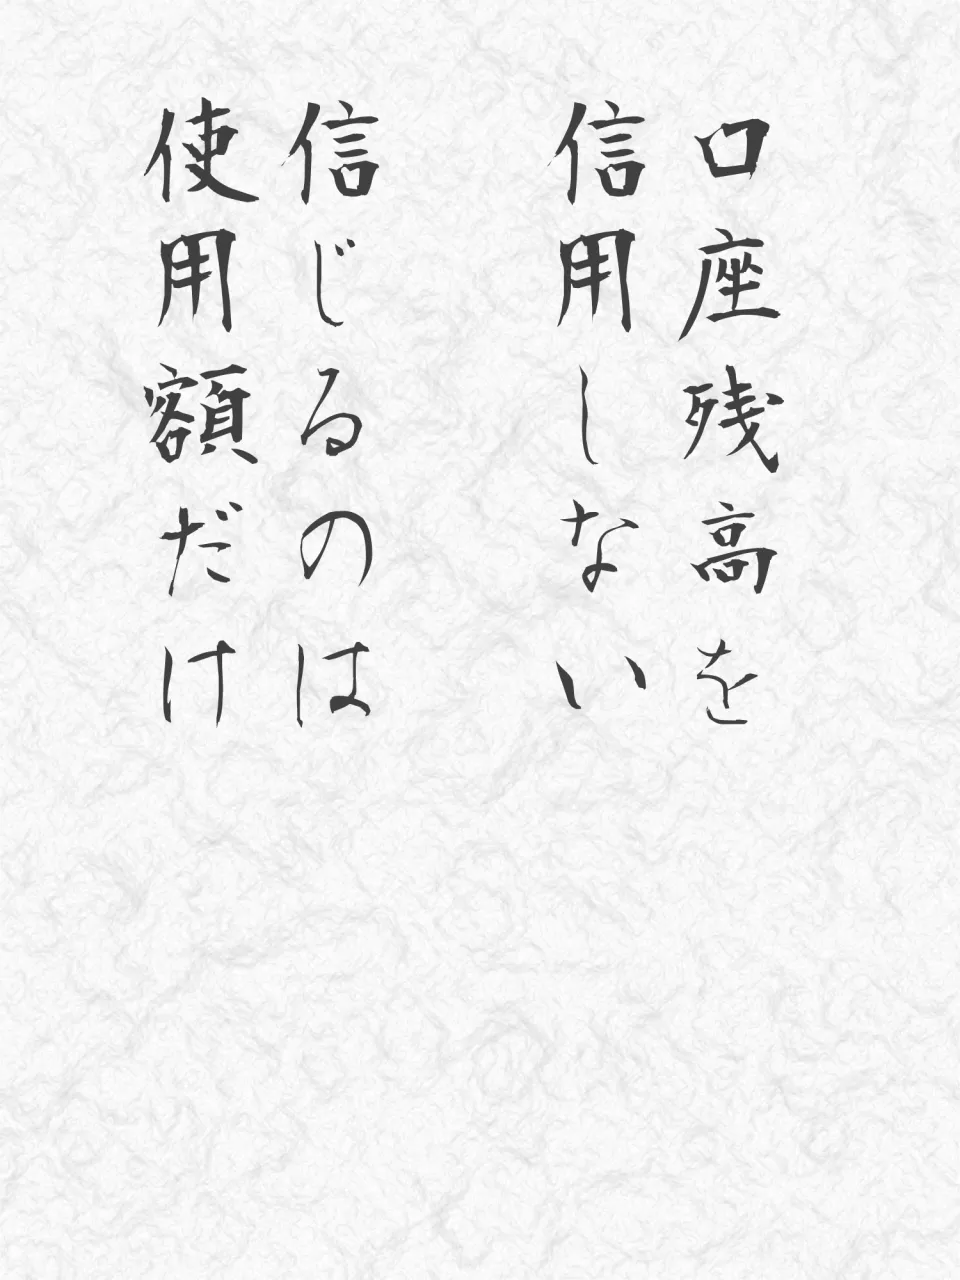 口座残高を
信用しない
信じるのは
使用額だけ